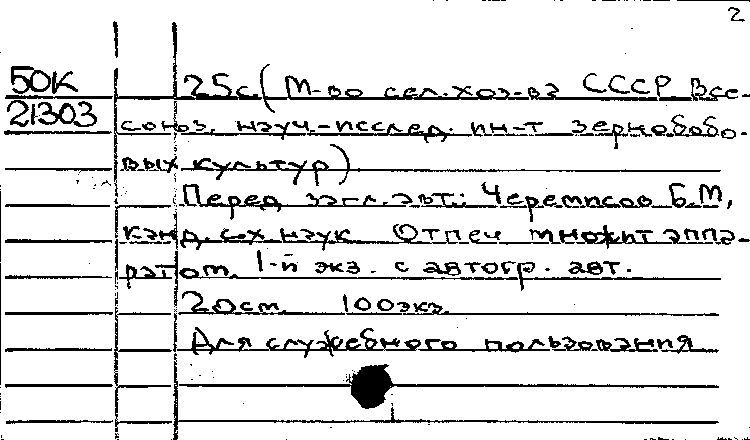 2
50К 25с. (М-во сел. хоз-ва СССР. Все-
21303 союз. науч.-исслед. ин-т зернобобо-
вых культур)
Перед загл. авт.: Черемисов Б.М,
канд. с-х. наук. Отпеч множит аппа-
ратом. 1-й экз. с автогр. авт.
20см. 100экз.
Для служебного пользования